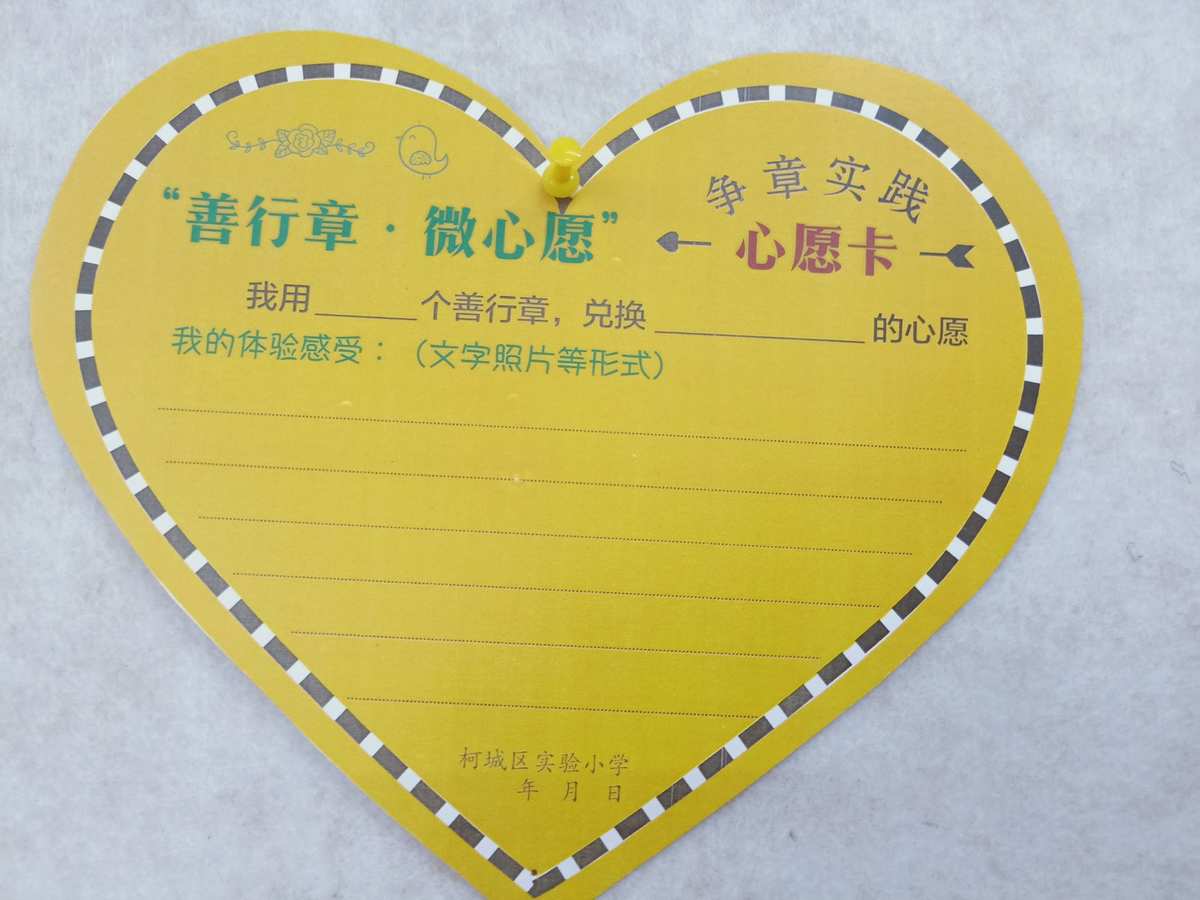 争章实践
“善行章·微心愿”
心愿卡
我用______个善行章，兑换____________的心愿
我的体验感受：（文字照片等形式）
柯城区实验小学
年 月 日